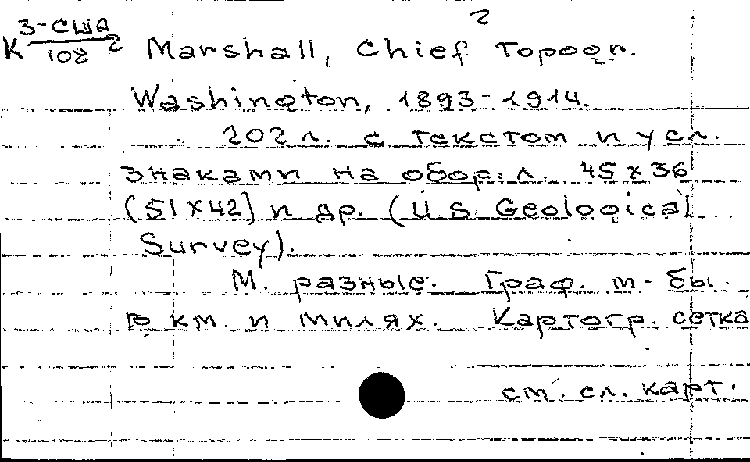 К 3-США/108 2 Marshall, Chief Topogr. 2
Washington, 1893-1914.
202 л. с текстом и усл.
знаками на обор. л. 45 x 36
(51 x 42) и др. (U.S. Geological
Survey).
М. разные. Граф. м-бы
в км. и милях. Картогр. сетка
см. сл. карт.